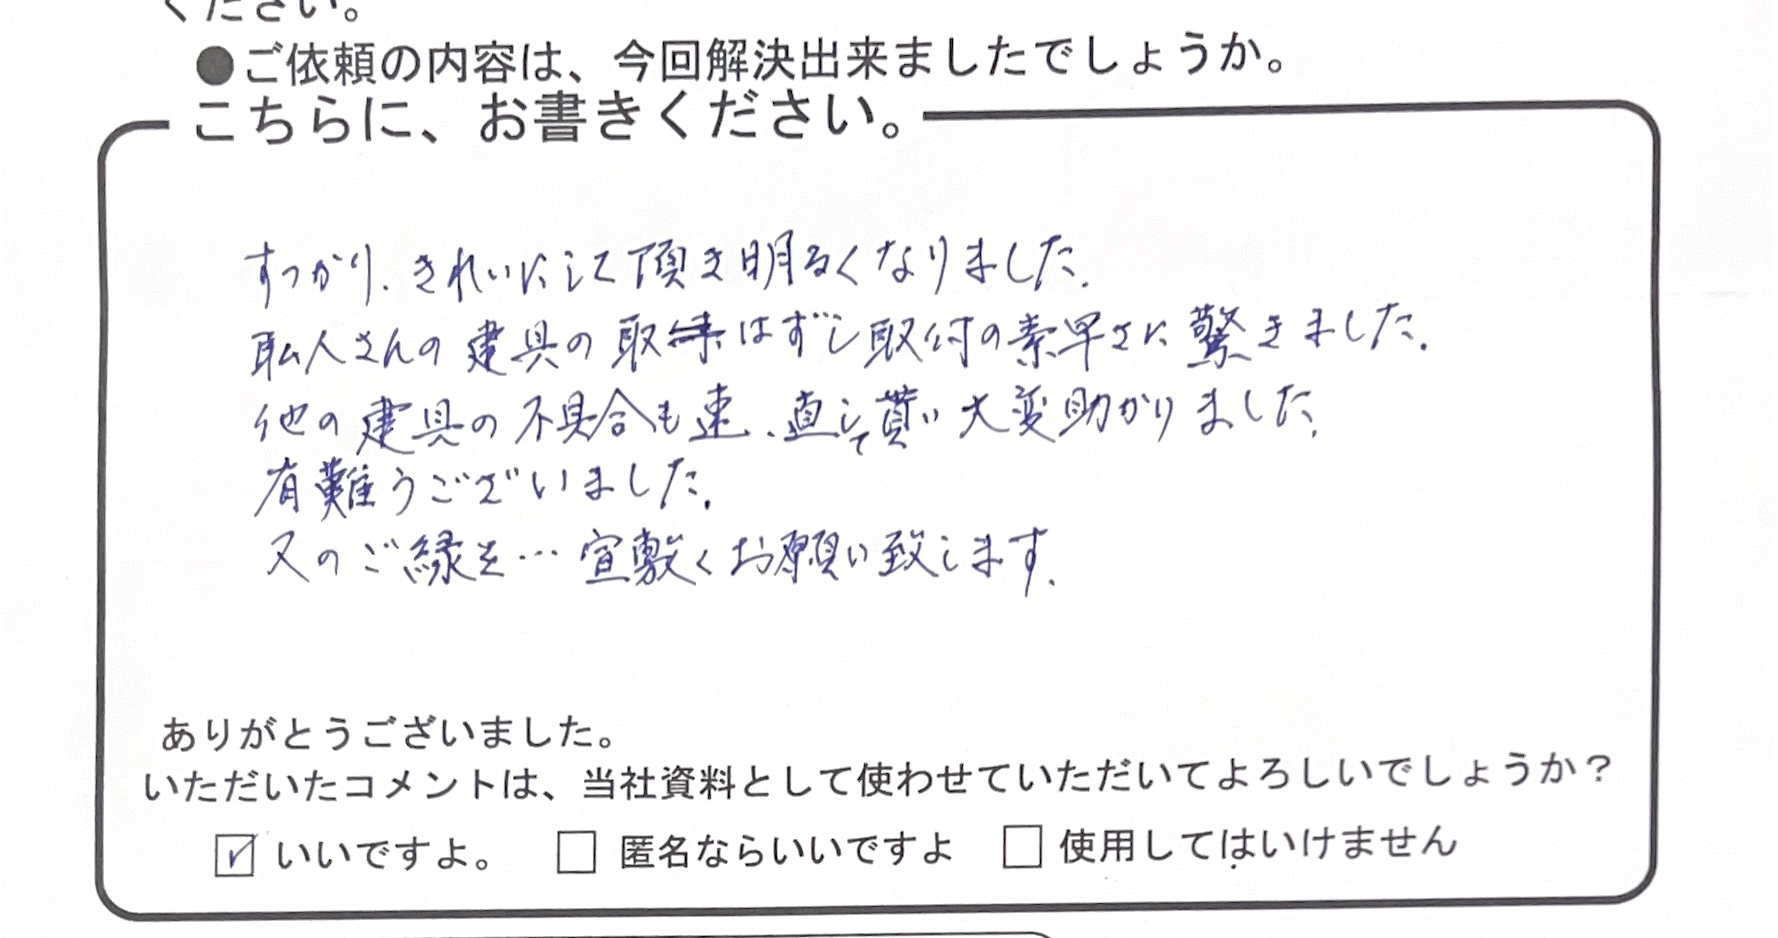 ください。
●ご依頼の内容は、今回解決出来ましたでしょうか。
こちらに、お書きください。
すっかり、きれいにして頂き明るくなりました。
職人さんの建具の取はずし取付の素早さに驚きました。
他の建具の不具合も速、直して貰い大変助かりました。
有難うございました。
又のご縁を…宜敷くお願い致します。
ありがとうございました。
いただいたコメントは、当社資料として使わせていただいてよろしいでしょうか？
☑ いいですよ。 □ 匿名ならいいですよ □ 使用してはいけません